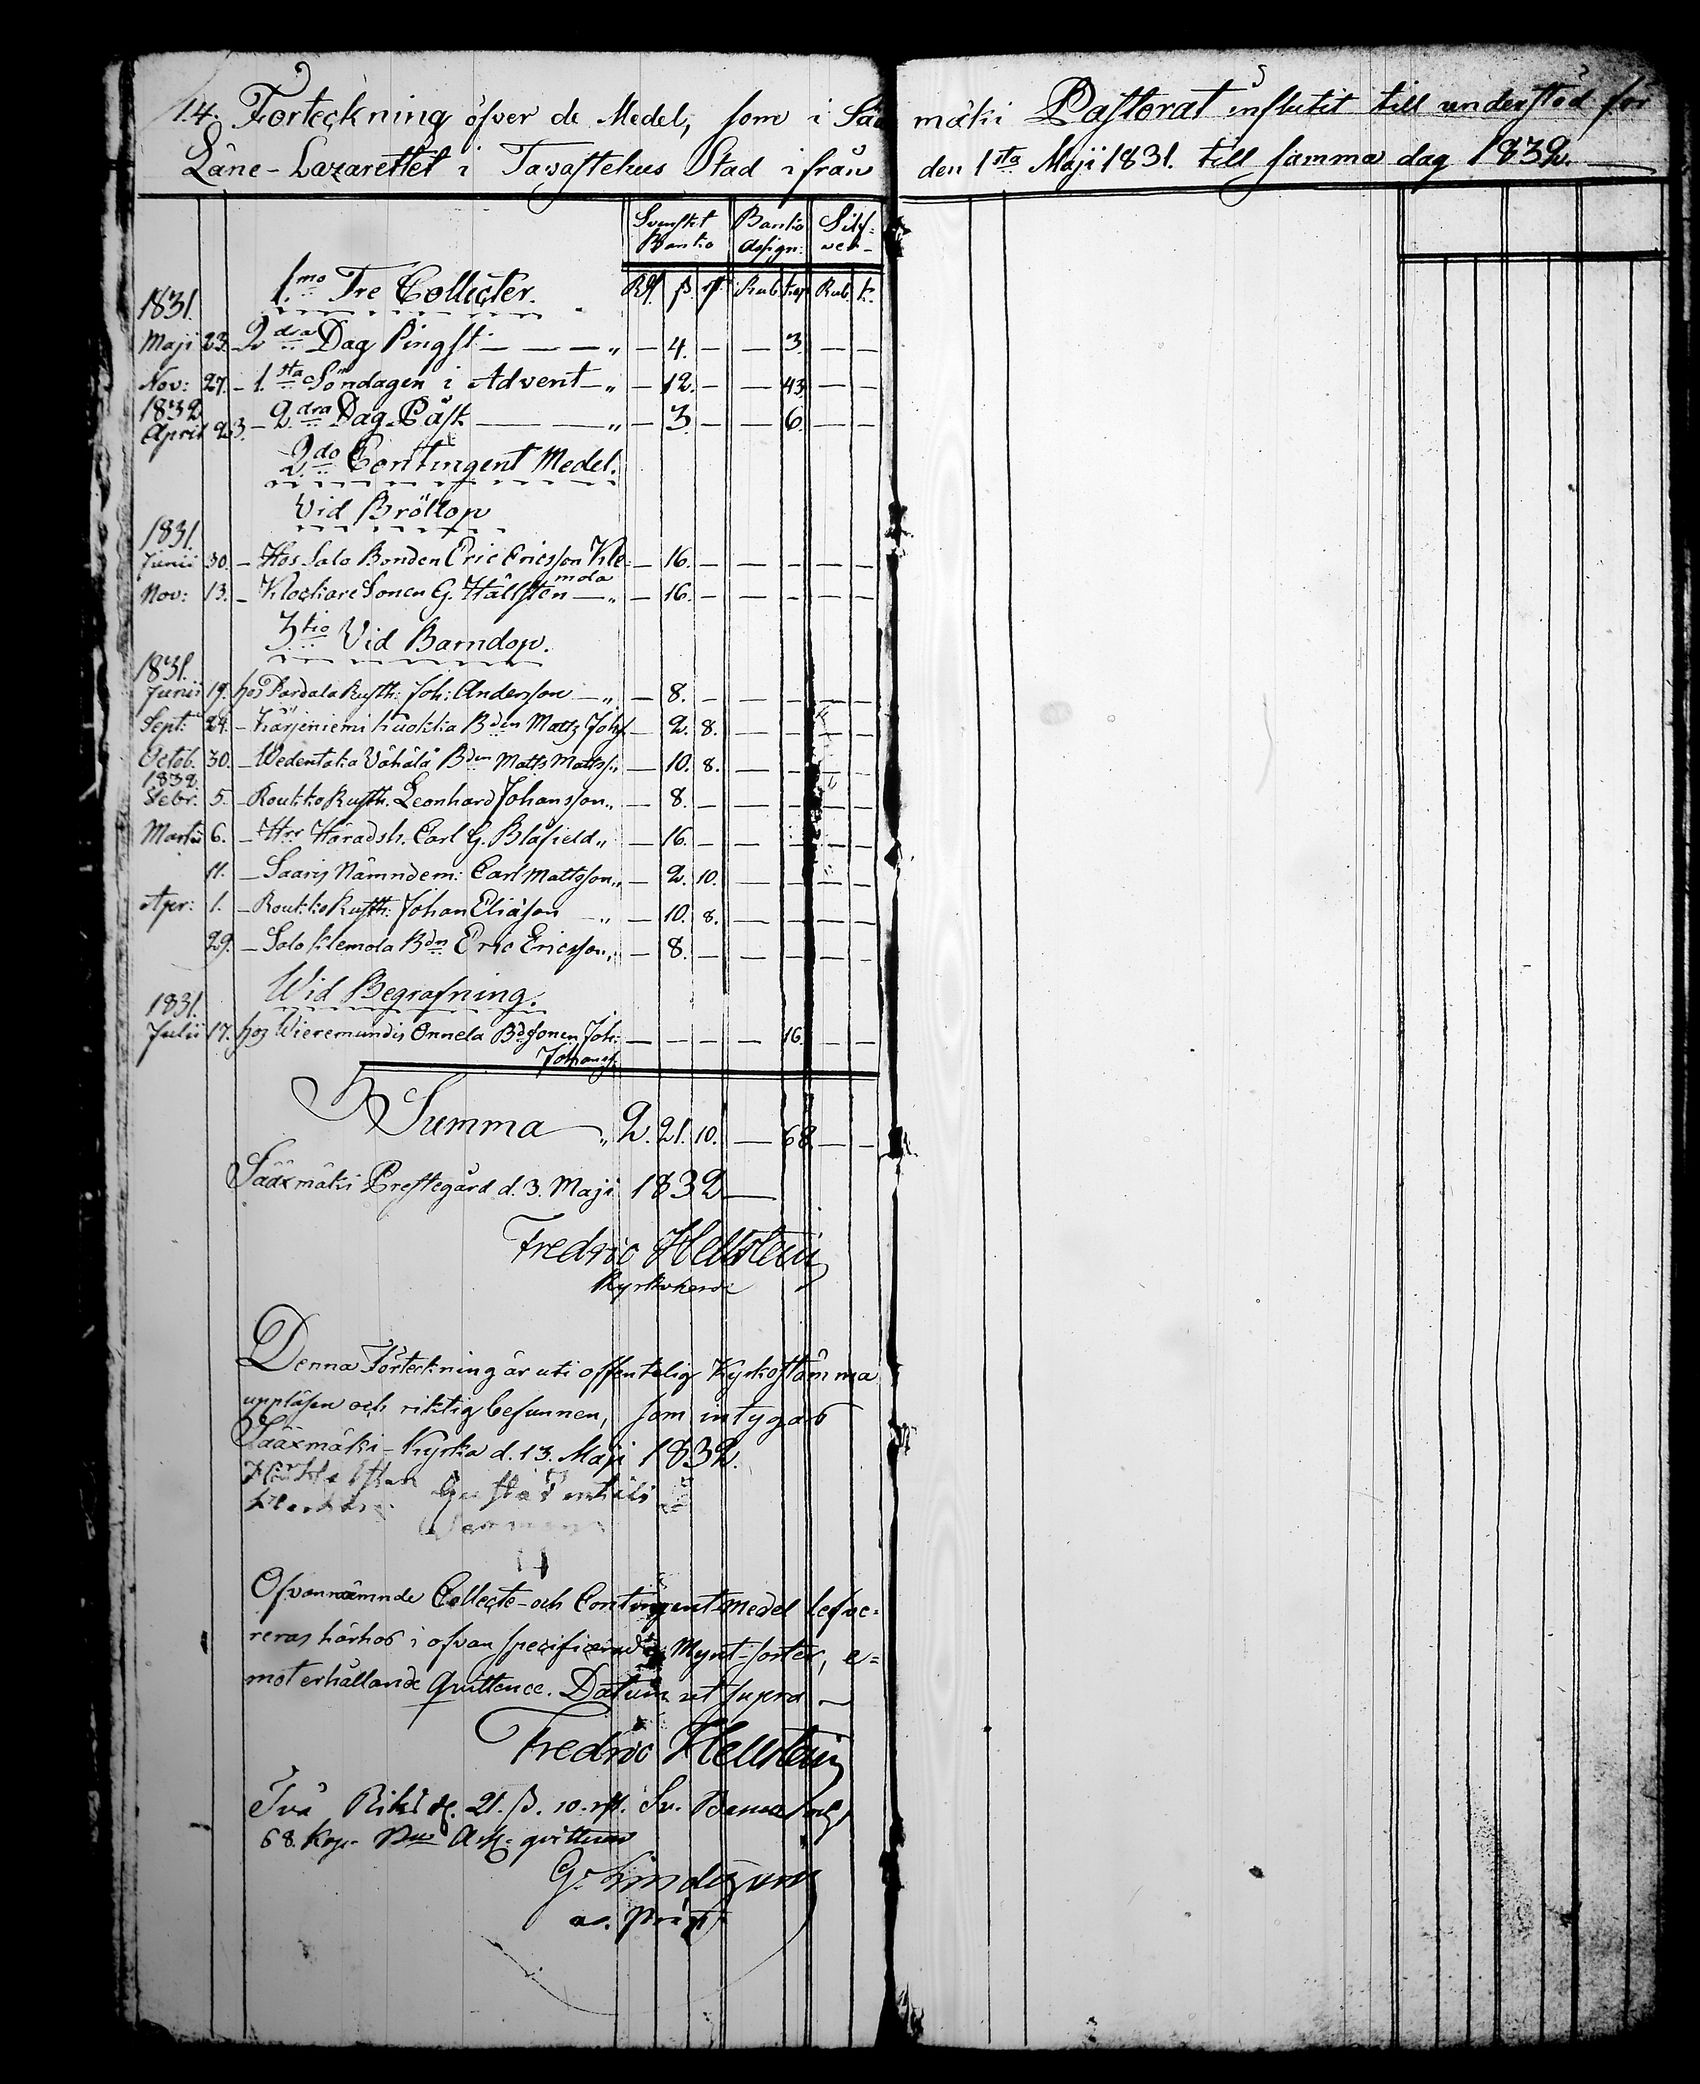 14. Förteckning öfver de Medel, som i Sääxmäki Pastorat influtit till understöd för
Läne-Lazarettet i Tavastehus Stad ifrån den 1sta Maji 1831. till samma dag 1832.
Svenskt Banko Banko Assign: Silfwer
Rd ß rst Rub. kop Rub. k.
1mo Tre Collecter.
1831.
Maji 23. 2dra Dag Pingst — — — „ — 4. — — 3. — —
Nov: 27. – 1sta Söndagen i Advent — „ — 12. — — 43. — —
1832
April 23. – 2dra Dag Påsk — — „ — 3. — — 6. — —
2do Contingent Medel.
Vid Bröllop
1831.
Junii 30. – Hos Salo Bonden Eric Ericsson Klemola — 16. — — — — —
Nov: 13. – Klockare Sonen G. Hällsten — „ — 16. — — — — —
3tio Vid Barndop.
1831.
Junii 19. hos Pardala Rusth: Joh: Andersson — „ — 8. — — — — —
Sept: 24. – Kärjeniemi Kuokka Bden Matts Johss — 2. 8. — — — —
Octob. 30. – Wedentaka Vähälä Bden Matts Matss: „ — 10. 8. — — — —
1832
Febr. 5. – Roukko Rusth. Leonhard Johansson „ — 8. — — — — —
Martii 6. – Hrr Häradsh. Carl G. Blåfield „ — 16. — — — — —
11. – Saaris Nämndem: Carl Mattsson „ — 2. 10. — — — —
Apr: 1. – Roukko Rusth: Johan Eliasson — „ — 10. 8. — — — —
29. – Salo Klemola Bdn Eric Ericsson „ — 8. — — — — —
Wid Begrafning.
1831.
Julii 17. hos Wieremundis Onnela Bdsonen Joh: — — — — 16. — —
Johanss.
Summa „ 2. 21. 10. — 68 — —
Sääxmäki Prestegård d. 3. Maji 1832
Fredric Hellsten
Kyrkoherde
Denna Förteckning är uti offentelig Kyrkostämma
uppläsen och riktig befunnen, som intygas
Sääxmäki-Kyrka d. 13. Maji 1832.
Gusta
Ofvannämnde Collecte- och Contingent medel lefvereras
härhos i ofvan specificerade Mynt-sorter, emot
erhållande quittence. Datum ut supra —
Fredric Hellsten
Två Riksd. 21. ß. 10. rst. Sv. Banco och
68. Kop. Bco Ass: qvitteras
G. Lindegren